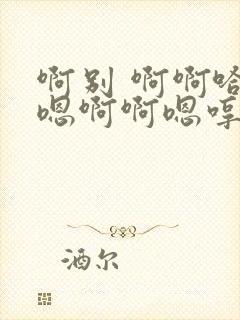 啊别 啊啊哈
嗯啊啊嗯哼
酒尔